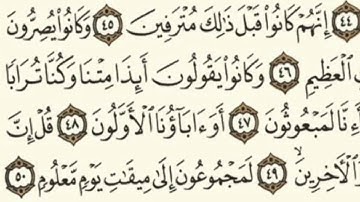 ٤٤ إِنَّهُمْ كَانُوا۟ قَبْلَ ذَٰلِكَ مُتْرَفِينَ ٤٥ وَكَانُوا۟ يُصِرُّونَ
ٱلْعَظِيمِ ٤٦ وَكَانُوا۟ يَقُولُونَ أَئِذَا مِتْنَا وَكُنَّا تُرَابًا
أَءِنَّا لَمَبْعُوثُونَ ٤٧ أَوَءَابَآؤُنَا ٱلْأَوَّلُونَ ٤٨ قُلْ إِنَّ
ٱلْـَٔاخِرِينَ ٤٩ لَمَجْمُوعُونَ إِلَىٰ مِيقَٰتِ يَوْمٍ مَّعْلُومٍ ٥٠